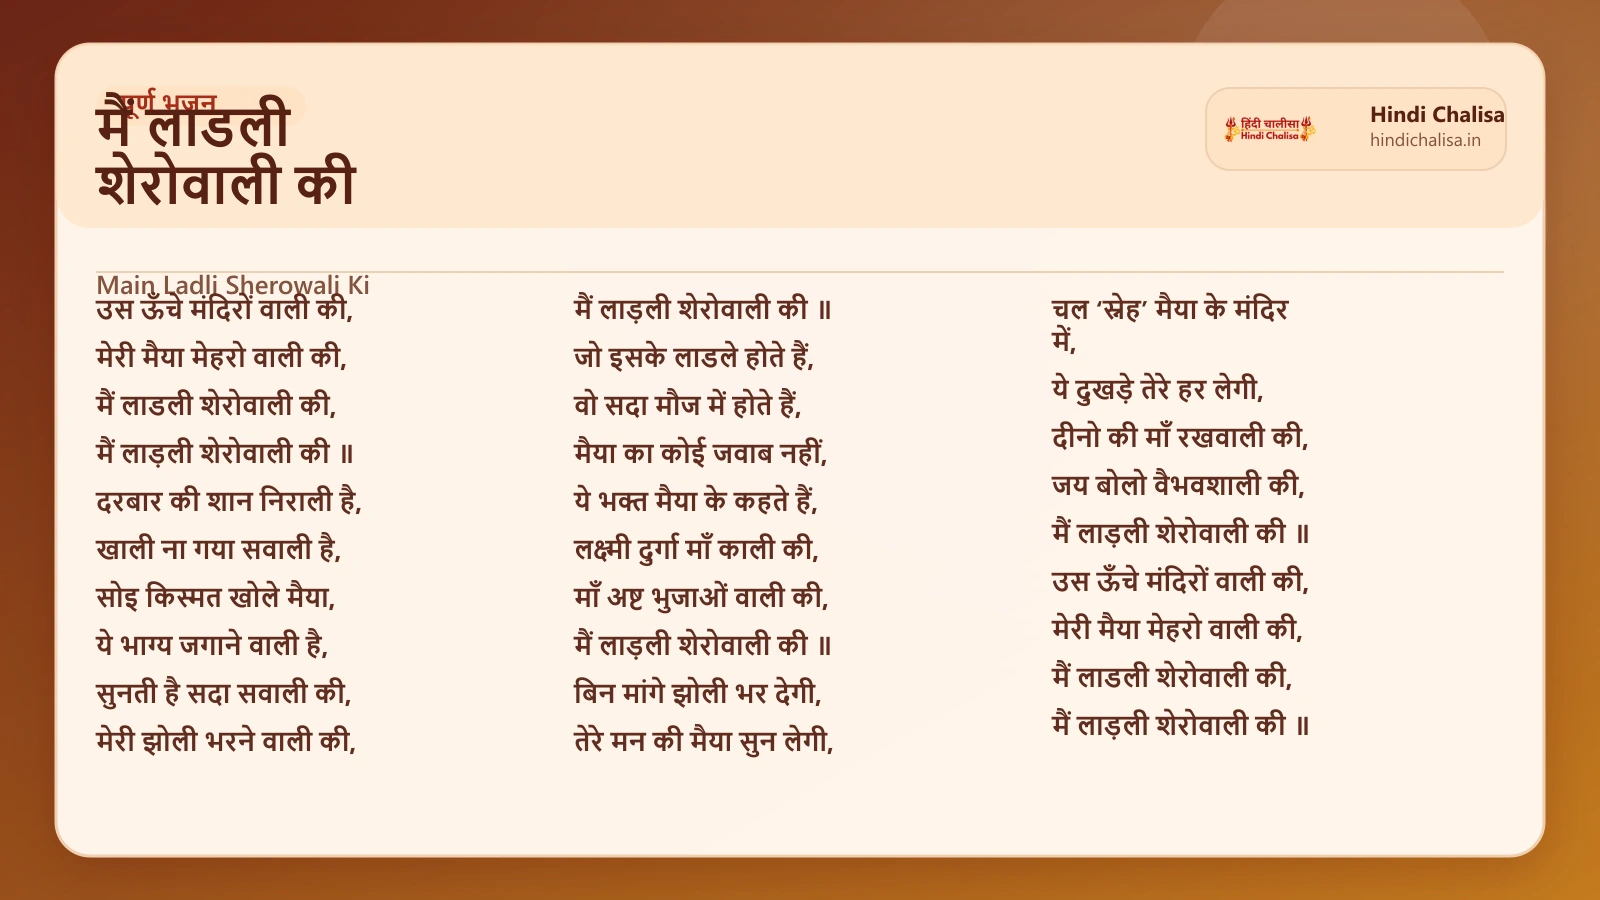 पूर्ण भजन
मैं लाडली
शेरोवाली की
हिंदी चालीसा
Hindi Chalisa
Hindi Chalisa
hindichalisa.in
Main Ladli Sherowali Ki
उस ऊँचे मंदिरों वाली की,
मेरी मैया मेहरो वाली की,
मैं लाडली शेरोवाली की,
मैं लाड़ली शेरोवाली की ॥
दरबार की शान निराली है,
खाली ना गया सवाली है,
सोइ किस्मत खोले मैया,
ये भाग्य जगाने वाली है,
सुनती है सदा सवाली की,
मेरी झोली भरने वाली की,
मैं लाड़ली शेरोवाली की ॥
जो इसके लाडले होते हैं,
वो सदा मौज में होते हैं,
मैया का कोई जवाब नहीं,
ये भक्त मैया के कहते हैं,
लक्ष्मी दुर्गा माँ काली की,
माँ अष्ट भुजाओं वाली की,
मैं लाड़ली शेरोवाली की ॥
बिन मांगे झोली भर देगी,
तेरे मन की मैया सुन लेगी,
चल ‘स्नेह’ मैया के मंदिर
में,
ये दुखड़े तेरे हर लेगी,
दीनो की माँ रखवाली की,
जय बोलो वैभवशाली की,
मैं लाड़ली शेरोवाली की ॥
उस ऊँचे मंदिरों वाली की,
मेरी मैया मेहरो वाली की,
मैं लाडली शेरोवाली की,
मैं लाड़ली शेरोवाली की ॥